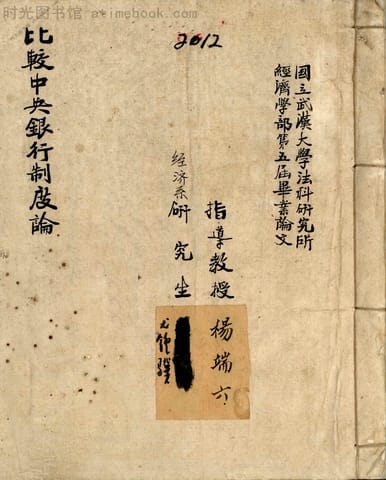 时光图书馆 - atimebook.com
2012
國立武漢大學法科研究所
經濟學部第五屆畢業論文
指導教授 楊端六
经济系研究生
比較中央銀行制度論